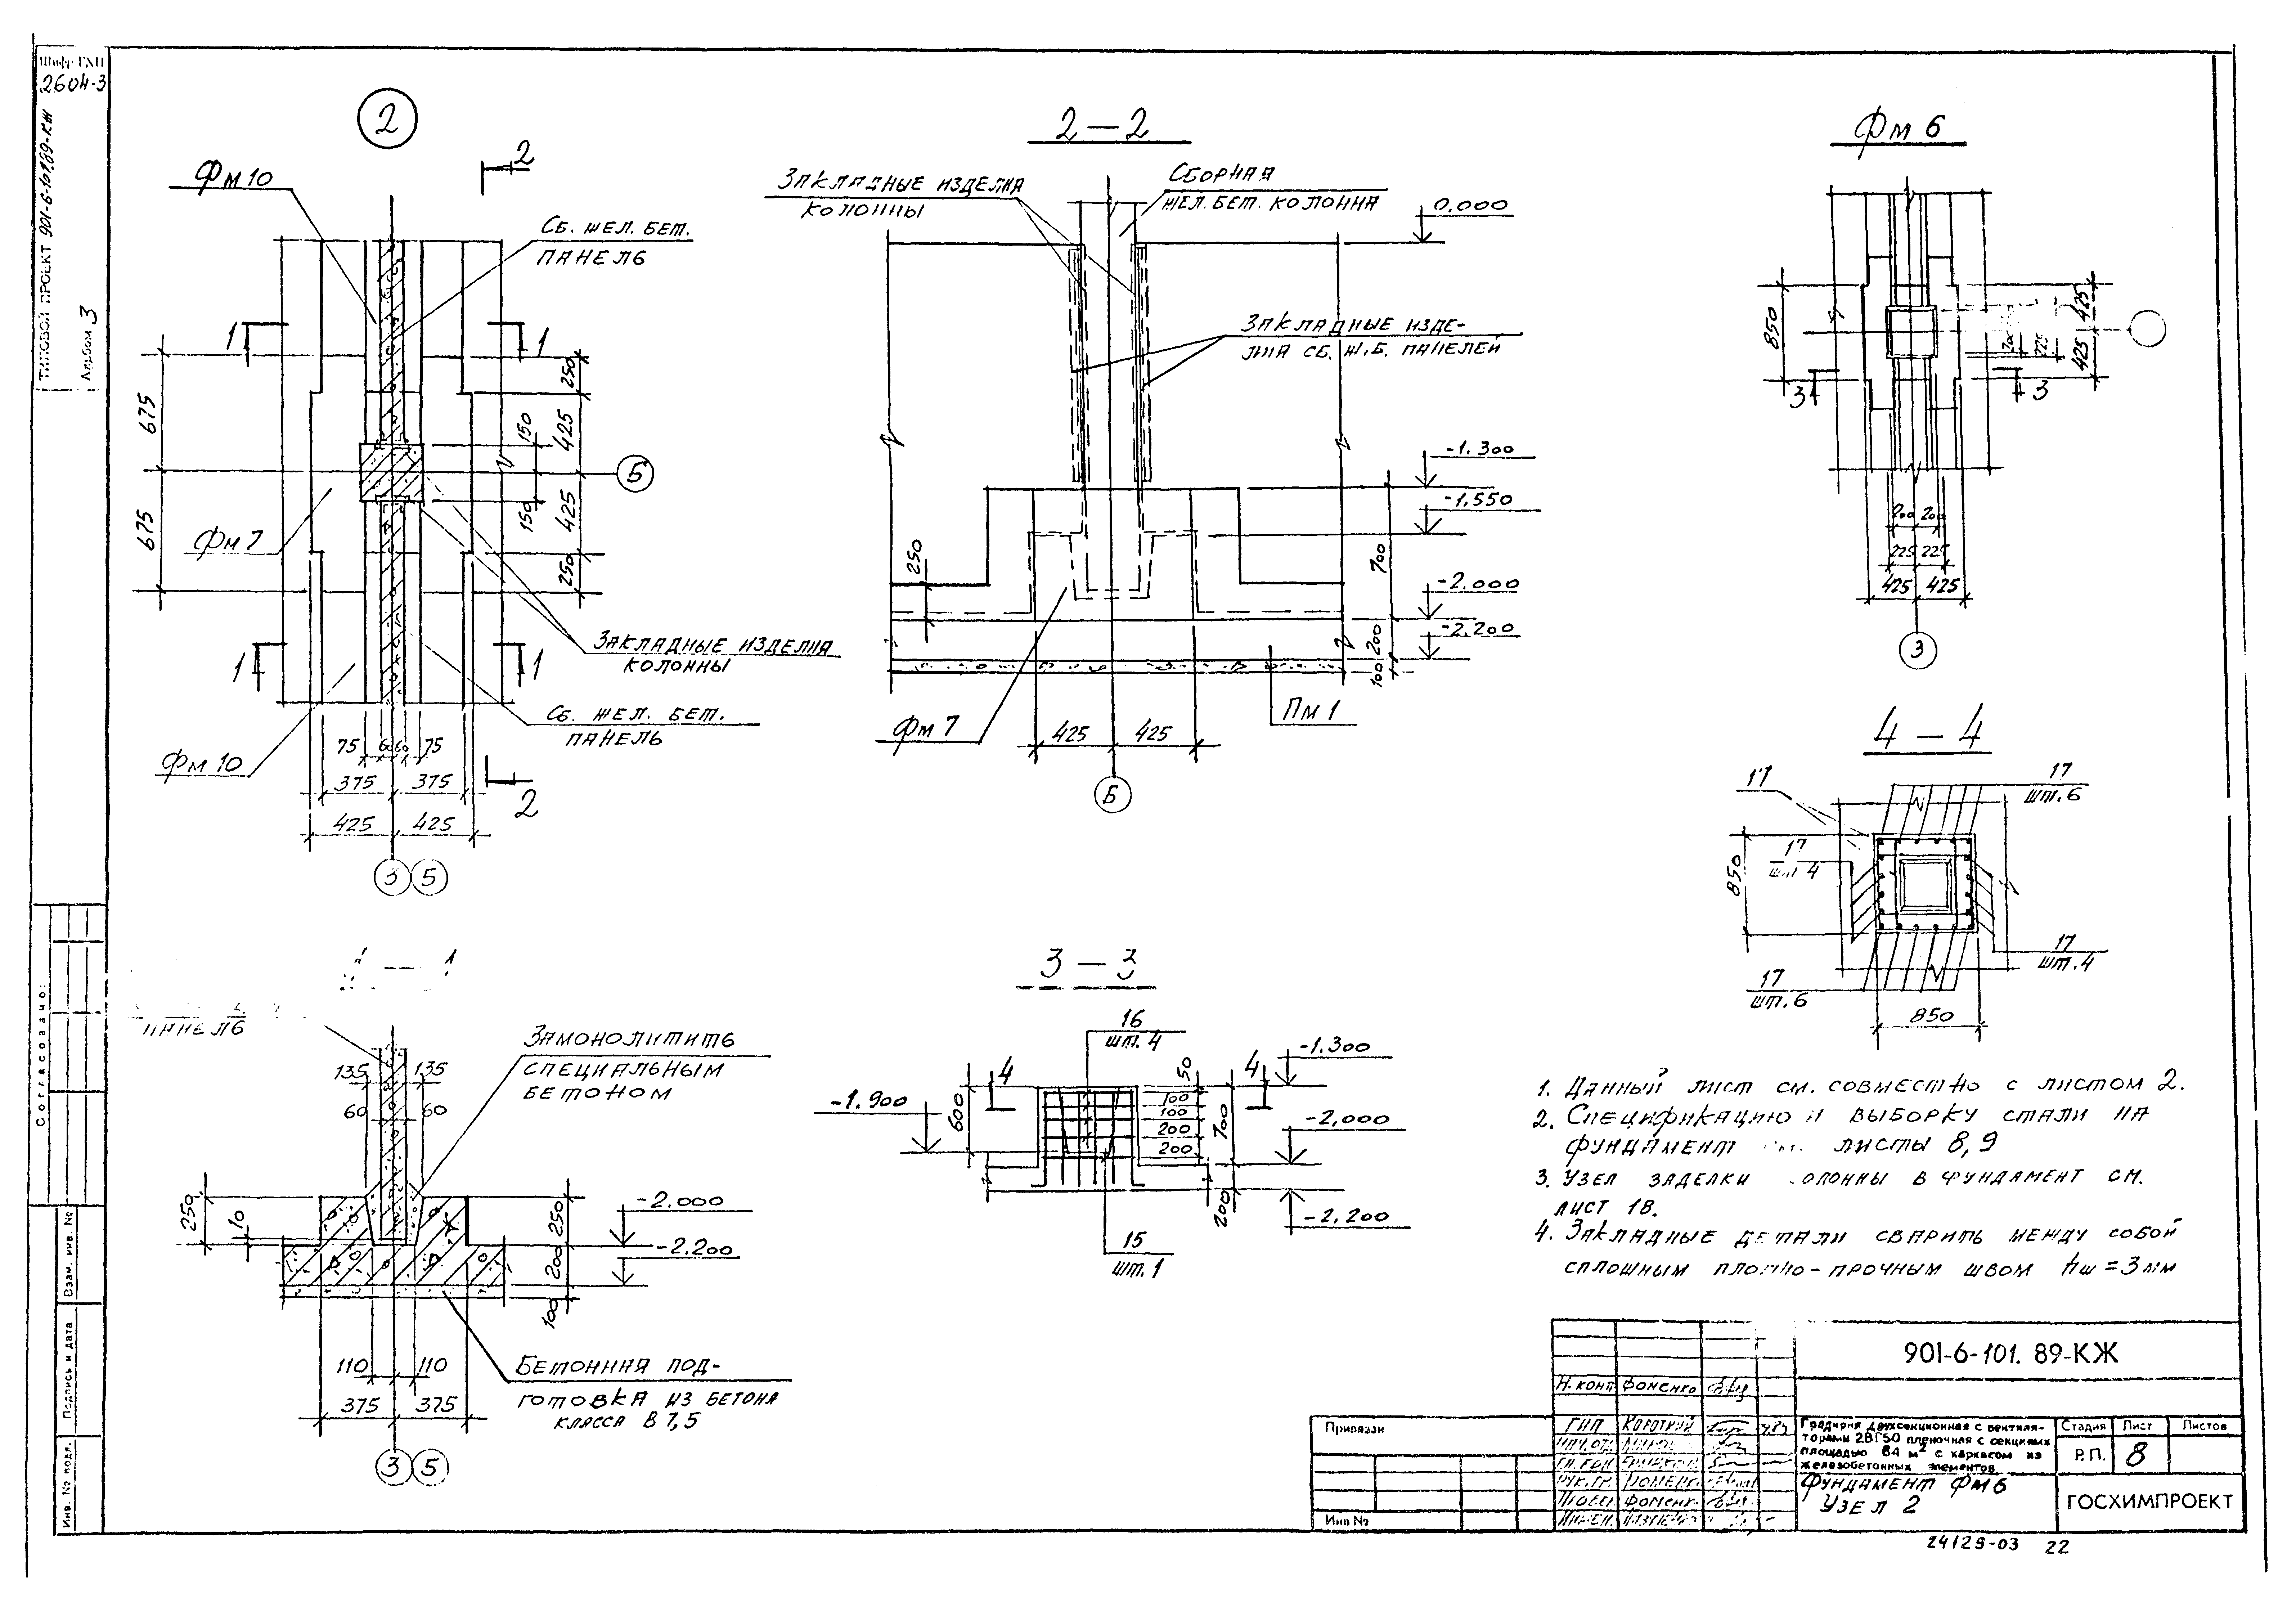 Шифр ГХП
2604-3
ТИПОВОЙ ПРОЕКТ 901-6-101.89-КЖ
Альбом 3
Согласовано:
Взам. инв. №
Подпись и дата
Инв. № подл.
2
Фм 10
2
Сб. жел. бет.
панель
1
1
675
675
250
425
150
150
425
250
Б
Фм 7
1
1
Закладные изделия
колонны
Сб. жел. бет.
панель
Фм 10
75
60
60
75
375
375
425
425
2
3
5
2-2
Закладные изделия
колонны
Сборная
жел. бет. колонна
0,000
Закладные изде-
лия сб. ж.б. панелей
-1.300
-1.550
-2.000
-2.200
250
700
200
100
Фм 7
Пм 1
425
425
Б
Фм 6
850
425
425
200
225
3
3
200
200
225
225
425
425
3
4-4
17
17
шт. 6
17
шт 4
850
17
шт. 4
17
шт. 6
850
1-1
панель
Замонолитить
специальным
бетоном
135
135
60
60
250
10
-2.000
-2.200
250
200
100
110
110
375
375
Бетонная под-
готовка из бетона
класса В 7,5
3
5
3-3
16
шт. 4
4
4
-1.300
-1.900
600
50
100
100
200
200
700
-2,000
200
-2,200
15
шт. 1
1. Данный лист см. совместно с листом 2.
2. Спецификацию и выборку стали на
фундамент листы 8,9
3. Узел заделки колонны в фундамент см.
лист 18.
4. Закладные детали сварить между собой
сплошным плотно-прочным швом hш = 3 мм
901-6-101. 89-КЖ
Н. конт Фоменко
ГИП Короткий
Фоменк
Привязан
Инв №
Градирня двухсекционная с вентиля-
торами 2ВГ50 пленочная с секциями
площадью 64 м² с каркасом из
железобетонных элементов
Стадия Лист Листов
Р.П. 8
Фундамент Фм 6
Узел 2
ГОСХИМПРОЕКТ
24129-03 22